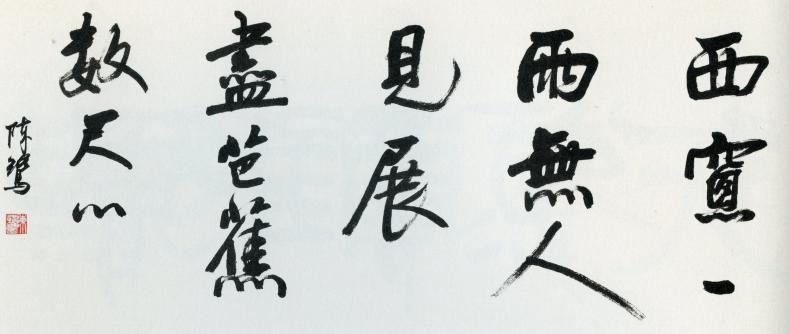 西窻一
雨無人
見展
盡芭蕉
数尺心
陈鹫